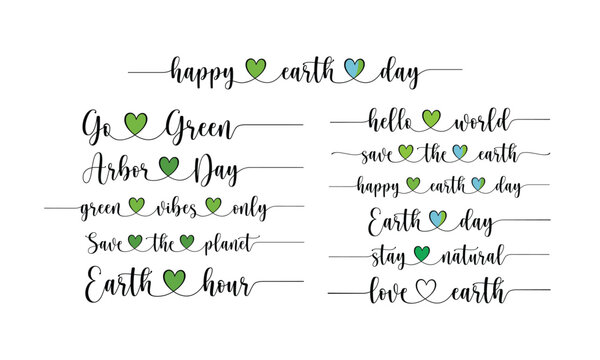 happy earth day
Go Green
Arbor Day
green vibes only
Save the planet
Earth hour
hello world
save the earth
happy earth day
Earth day
stay natural
love earth